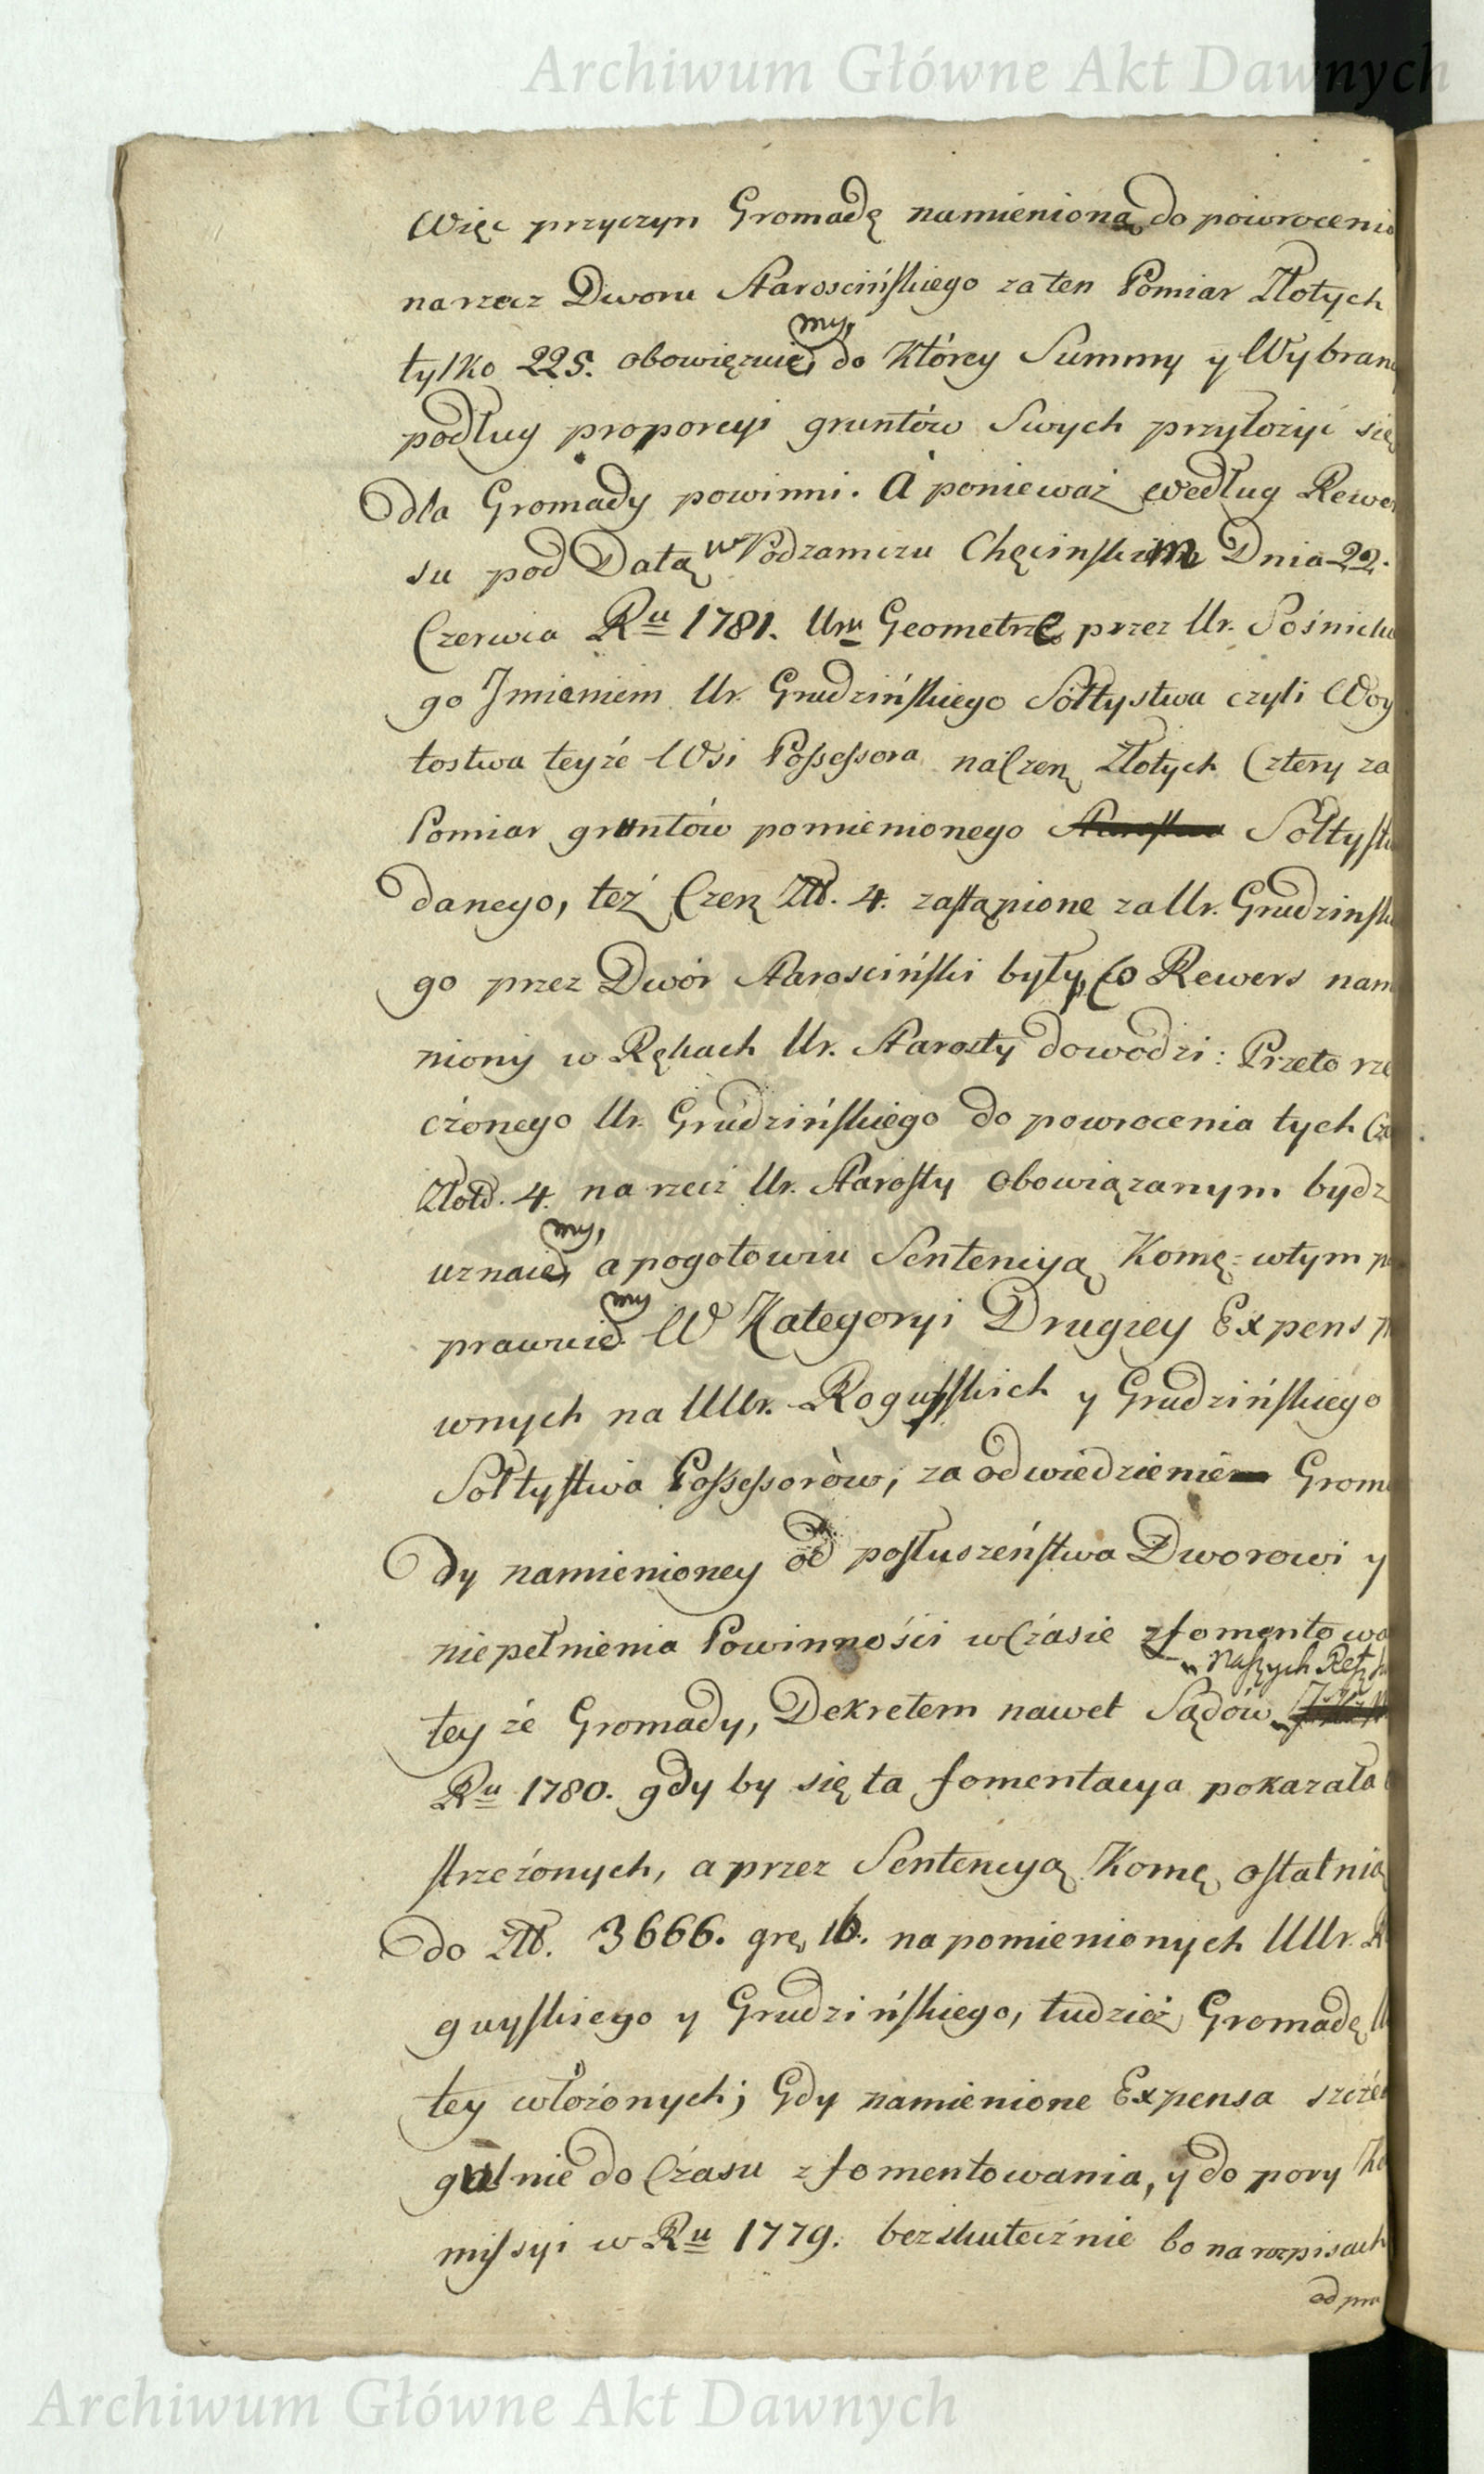 Archiwum Główne Akt Dawnych
Więc przyczyn Gromadę namienioną do powrocenia
na rzecz Dworu Starościńskiego za ten Pomiar Złotych
tylko 225. obowięzuie my, do Którey Summy y Wybrany
podług proporcyi gruntów Swych przyłożyć się
dla Gromady powinni. A ponieważ według Rewer
su pod Datą w Podzamczu Chęcinskim Dnia 22.
Czerwca Ru 1781. Uru Geometrze przez Ur. Pośnickie
go Jmieniem Ur. Grudzińskiego Sołtystwa czyli Woy
tostwa teyże Wsi Possessora na Czerw Złotych Cztery za
Pomiar gruntów pomienionego Sołtystw
danego, też Czerw Złł. 4. zastąpione za Ur. Grudzinskie
go przez Dwór Starościński były, co Rewers namie
niony w Rękach Ur. Starosty dowodzi: Przeto rze
czonego Ur. Grudzińskiego do powrocenia tych Cze
Złotd. 4. na rzecz Ur. Starosty obowiązanym bydz
my,
uznaie, a pogotowiu Sentencyą Komę: w tym po
my
prawuie. W Kategoryi Drugiey Expens pra
wnych na UUr. Roguyskich y Grudzińskiego
Sołtystwa Possessorów, za odwiedzenie Groma
dy namienioney od posłuszeństwa Dworowi y
niepełnienia Powinności w Czasie zfomentowa
naszych Ref
tey że Gromady, Dekretem nawet Sądów
Ru 1780. gdy by się ta fomentacya pokazała
strzeżonych, a przez Sentencyą Komę ostatnią
do Złł. 3666. gr. 16. na pomienionych UUr. Ro
guyskiego y Grudzińskiego, tudzież Gromadę
tey włożonych; Gdy namienione Expensa szcze
gulnie do Czasu zfomentowania, y do pory Ko
missyi w Ru 1779. bezskutecznie bo na rozpisach
od pra
Archiwum Główne Akt Dawnych